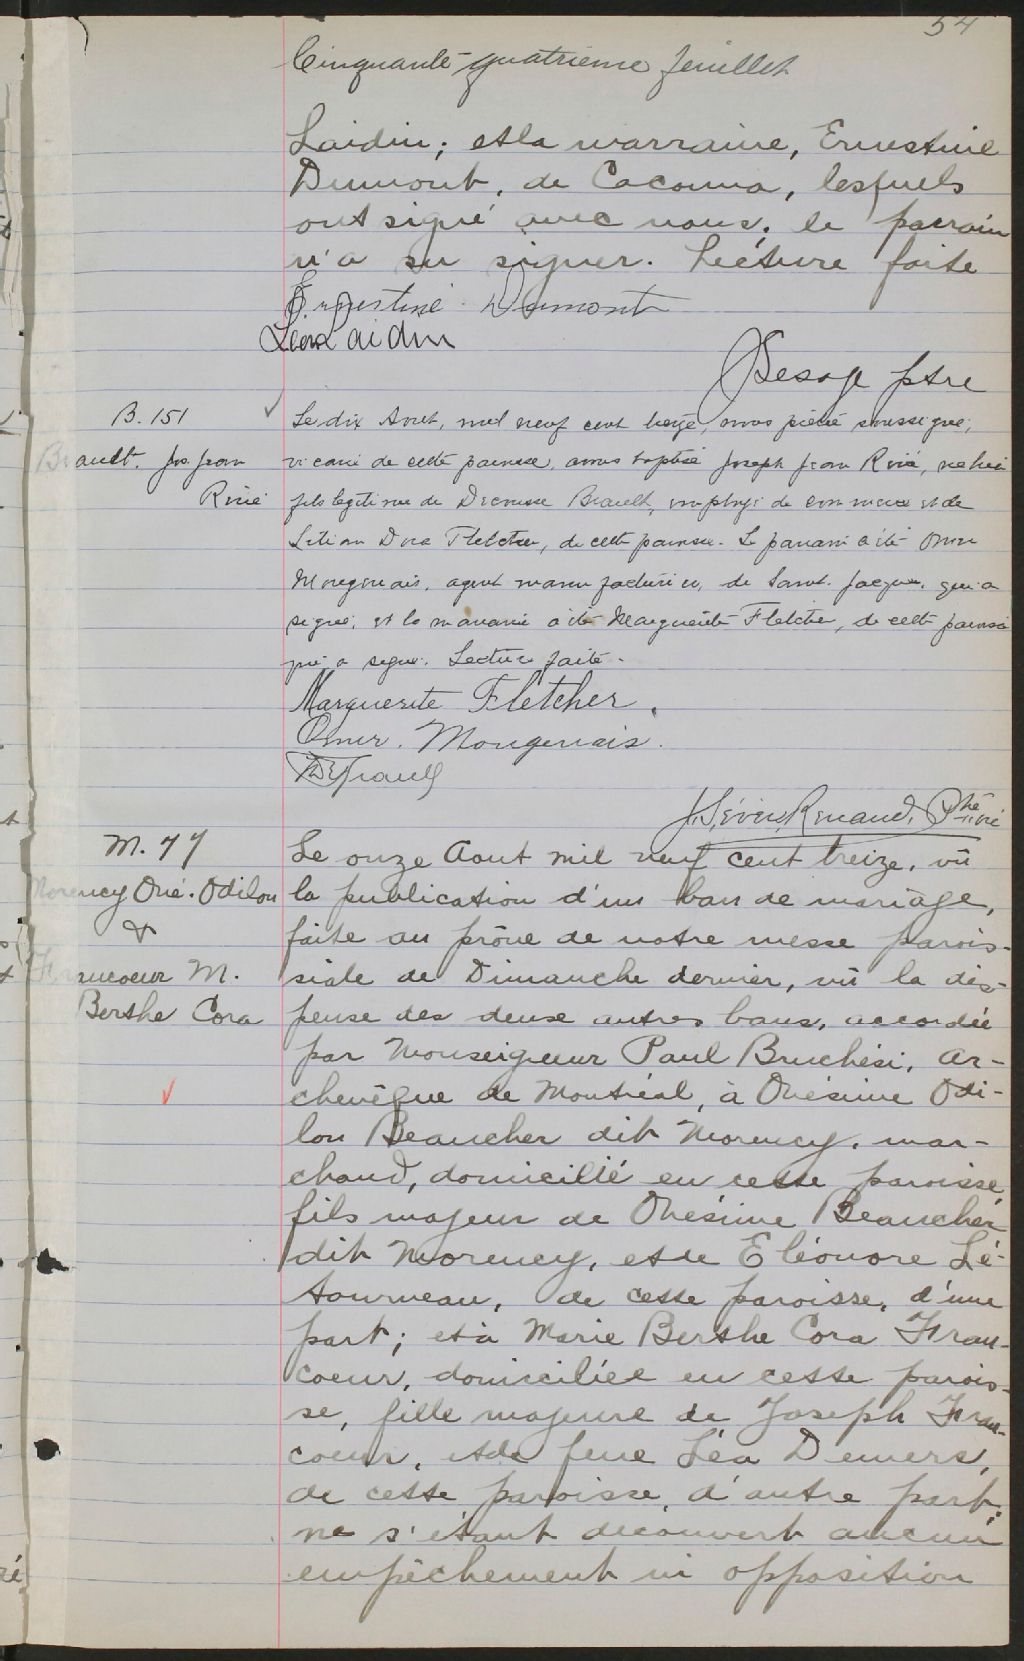 54
Cinquante-quatrième feuillet
Laidin; et la marraine, Ernestine
Dumont, de Cacouna, lesquels
ont signé avec nous, le parrain
n'a su signer. Lecture faite
Ernestine Dumont
Léon Laidin
Lesage ptre
B. 151
Brault. Jos. Jean
René
Le dix Aout, mil neuf cent treize, nous prêtre soussigné,
vicaire de cette paroisse, avons baptisé Joseph Jean René, né hier
fils légitime de Brault, employé de commerce et de
Dora Fletcher, de cette paroisse. Le parrain a été Omer
Mongenais, agent manufacturier, de Saint-Jacques, qui a
signé, et la marraine a été Marguerite Fletcher, de cette paroisse
qui a signé. Lecture faite.
Marguerite Fletcher.
Omer. Mongenais.
J. Sévère Renaud, Ptre
vic
M. 77
Morency Oné. Odilon
&
Francoeur M.
Berthe Cora
Le onze Aout mil neuf cent treize, vû
la publication d'un ban de mariage,
faite au prône de notre messe parois-
siale de Dimanche dernier, vû la dis-
pense des deuse autres bans, accordée
par Monseigneur Paul Bruchési, Ar-
chevêque de Montréal, à Onésime Odi-
lon Beaucher dit Morency, mar-
chand, domicilié en cette paroisse,
fils majeur de Onésime Beaucher
dit Morency, et de Eléonore Lé-
tourneau, de cette paroisse, d'une
part; et à Marie Berthe Cora Fran-
coeur, domiciliée en cette parois-
se, fille majeure de Joseph Fran-
coeur, et de feue Léa Demers,
de cette paroisse, d'autre part;
ne s'étant découvert aucun
empêchement ni opposition